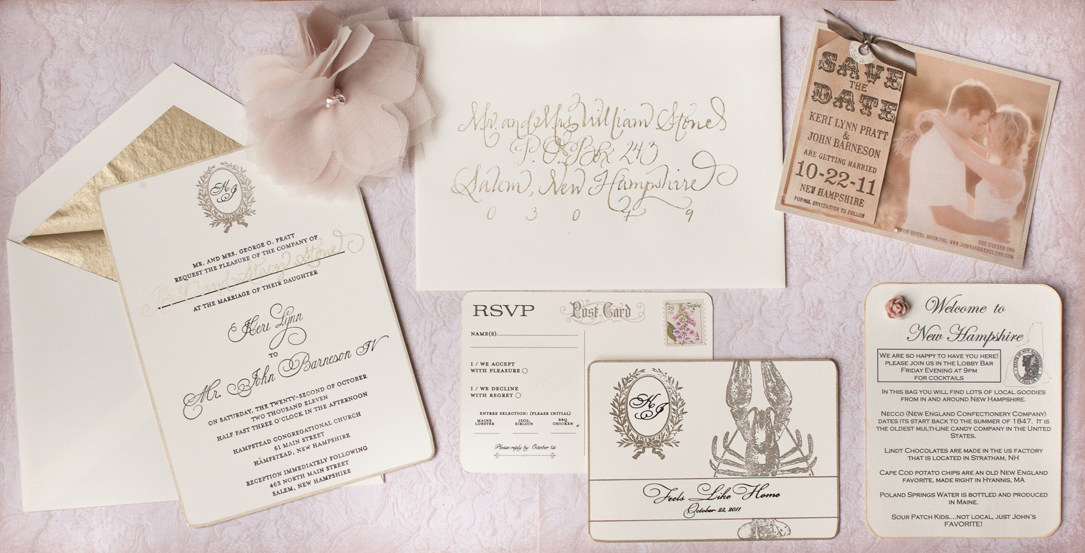 KJ
MR. AND MRS. GEORGE O. PRATT
REQUEST THE PLEASURE OF THE COMPANY OF
AT THE MARRIAGE OF THEIR DAUGHTER
Keri Lynn
TO
Mr. John Barneson IV
ON SATURDAY, THE TWENTY-SECOND OF OCTOBER
TWO THOUSAND ELEVEN
HALF PAST THREE O'CLOCK IN THE AFTERNOON
HAMPSTEAD CONGREGATIONAL CHURCH
61 MAIN STREET
HAMPSTEAD, NEW HAMPSHIRE
RECEPTION IMMEDIATELY FOLLOWING
465 NORTH MAIN STREET
SALEM, NEW HAMPSHIRE
Mr. and Mrs. William Stone
P.O. Box 243
Salem, New Hampshire
0 3 0 7 9
SAVE
THE
DATE
KERI LYNN PRATT
&
JOHN BARNESON
ARE GETTING MARRIED
10-22-11
NEW HAMPSHIRE
FORMAL INVITATION TO FOLLOW
RSVP
Post Card
NAME(S)
I / WE ACCEPT
WITH PLEASURE
I / WE DECLINE
WITH REGRET
ENTREE SELECTION: (PLEASE INITIAL)
LOBSTER SIRLOIN BBQ CHICKEN
Please reply by October 1st
KJ
Feels Like Home
October 22, 2011
Welcome to
New Hampshire
WE ARE SO HAPPY TO HAVE YOU HERE!
PLEASE JOIN US IN THE LOBBY BAR
FRIDAY EVENING AT 9PM
FOR COCKTAILS
IN THIS BAG YOU WILL FIND LOTS OF LOCAL GOODIES
FROM IN AND AROUND NEW HAMPSHIRE.
NECCO (NEW ENGLAND CONFECTIONERY COMPANY)
DATES ITS START BACK TO THE SUMMER OF 1847. IT IS
THE OLDEST MULTI-LINE CANDY COMPANY IN THE UNITED
STATES.
LINDT CHOCOLATES ARE MADE IN THE US FACTORY
THAT IS LOCATED IN STRATHAM, NH
CAPE COD POTATO CHIPS ARE AN OLD NEW ENGLAND
FAVORITE, MADE RIGHT IN HYANNIS, MA
POLAND SPRINGS WATER IS BOTTLED AND PRODUCED
IN MAINE.
SOUR PATCH KIDS....NOT LOCAL, JUST JOHN'S
FAVORITE!